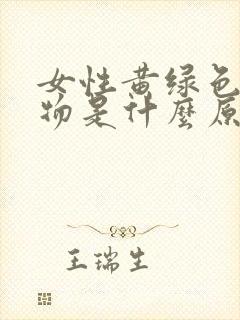 女性黄绿色
物是什麼原
王瑞生